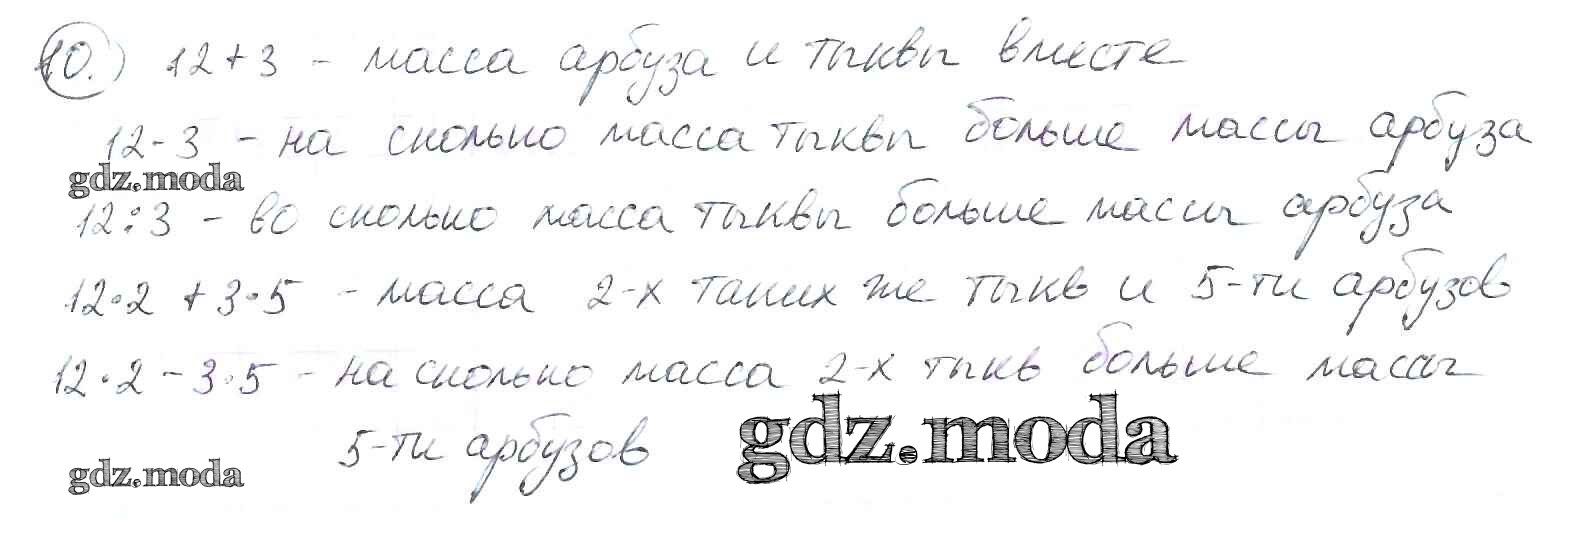 10.) 12+3 - масса арбуза и тыквы вместе
12-3 - на сколько масса тыквы больше массы арбуза
gdz.moda
12:3 - во сколько масса тыквы больше массы арбуза
12·2 + 3·5 - масса 2-х таких же тыкв и 5-ти арбузов
12·2 - 3·5 - на сколько масса 2-х тыкв больше массы
5-ти арбузов
gdz.moda
gdz.moda